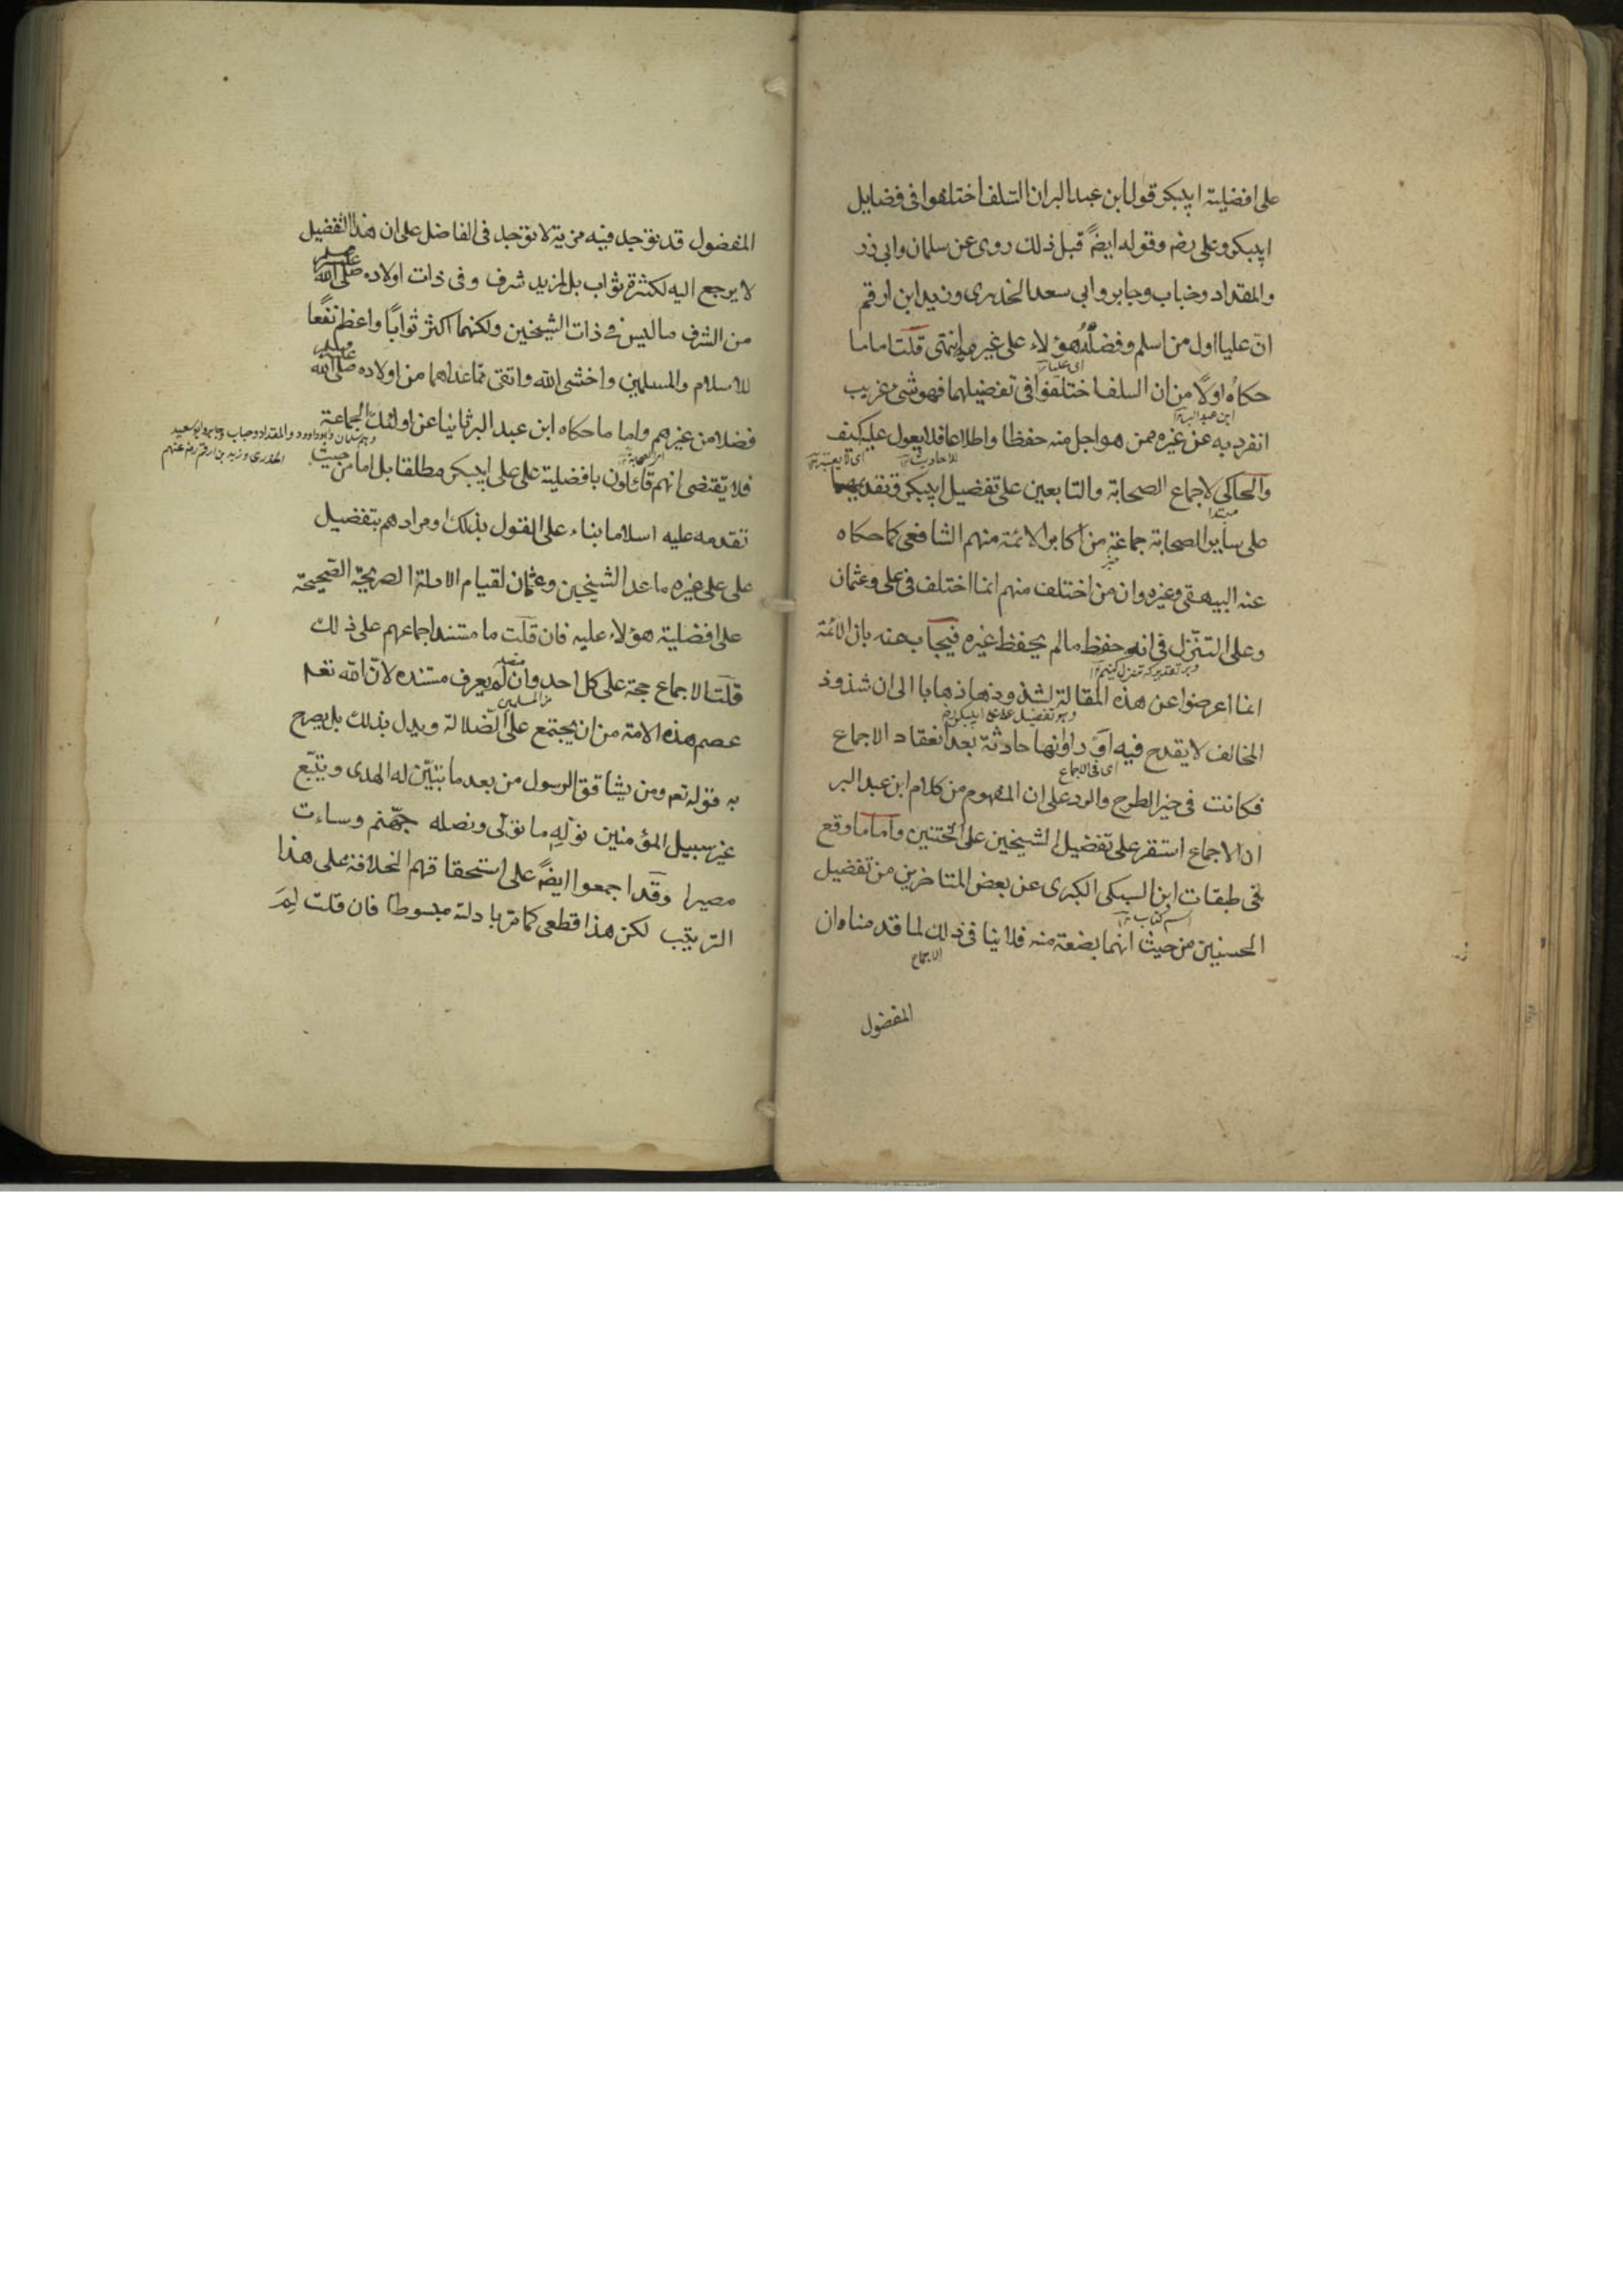 على افضلية ابيبكر قول ابن عبد البر ان السلف اختلفوا فى فضايل
ابيبكر وعلى رضه وقوله ايضاً قبل ذلك روى عن سلمان وابى ذر
والمقداد وخباب وجابر وابى سعد الخدرى وزيد ابن ارقم
ان عليا اول من اسلم وفضله هؤلاء على غيره انتهى قلت اما ما
اى عليا
حكاه اولاً من ان السلف اختلفوا فى تفضيلهما فهو شئ غريب
ابن عبد البر
انفرد به عن غيره ممن هو اجل منه حفظا واطلاعا فلا يعول عليه كيف
للاحاديث
والحاكى لاجماع الصحابة والتابعين على تفضيل ابيبكر وتقديمه
مبتدا
على ساير الصحابة جماعة من اكابر الائمة منهم الشافعى كما حكاه
خبر
عنه البيهقى وغيره وان من اختلف منهم انما اختلف فى على وعثمان
وعلى التنزل فى انه حفظ مالم يحفظ غيره فيجاب عنه بان الائمة
وبر تقدير كه تنزل كنيم
انما اعرضوا عن هذه المقالة لشذوذها ذهابا الى ان شذوذ
وهو تفضيل على على ابيبكر رض
المخالف لا يقدح فيه او راوانها حادثة بعد انعقاد الاجماع
اى فى الاجماع
فكانت فى حيز الطرح والرد على ان المفهوم من كلام ابن عبد البر
ان الاجماع استقر على تفضيل الشيخين على الختنين واما ما وقع
فى طبقات ابن السبكى الكبرى عن بعض المتاخرين من تفضيل
اسم كتاب
الحسنين من حيث انهما بضعة منه فلا ينافى ذلك لما قدمناه ان
الاجماع
المفضول
المفضول قد توجد فيه مزية لا توجد فى الفاضل على ان هذا التفضيل
لا يرجع اليه لكثرة ثواب بل لمزيد شرف وفى ذات اولاده صلى الله عليه وسلم
من الشرف ما ليس فى ذات الشيخين ولكنهما اكثر ثواباً واعظم نفعًا
للاسلام والمسلمين واخشى الله واتقى ممّا عداهما من اولاده صلى الله عليه وسلم
فضلا من غيرهم واما ما حكاه ابن عبد البر ثانيا عن اولئك الجماعة
وهم سلمان وابو داود والمقداد وخباب وجابر وابو سعيد
الخدرى وزيد بن ارقم رضعنهم
من الصحابة
فلا يقتضى انهم قائلون بافضلية على على ابيبكر مطلقا بل اما من حيث
تقدمه عليه اسلاما بناء على القول بذلك او مرادهم بتفضيل
على على غيره ما عدا الشيخين وعثمان لقيام الادلة الصريحة الصحيحة
على افضلية هؤلاء عليه فان قلت ما مستند اجماعهم على ذلك
قلت الاجماع حجة على كل احد وان لم يعرف مستنده لان الله تعم
من المسلمين
عصم هذه الامة من ان يجتمع على الضلالة ويدل بذلك بل يصرح
به قوله تعم ومن يشاقق الرسول من بعد ما تبيّن له الهدى ويتبع
غير سبيل المؤمنين نولّهِ ما تولّى ونصله جهّنم وساءت
مصيرا وقد اجمعوا ايضاً على استحقاقهم الخلافة على هذا
الترتيب لكن هذا قطعى كما مرّ بادلته مبسوطا فان قلت لِمَ